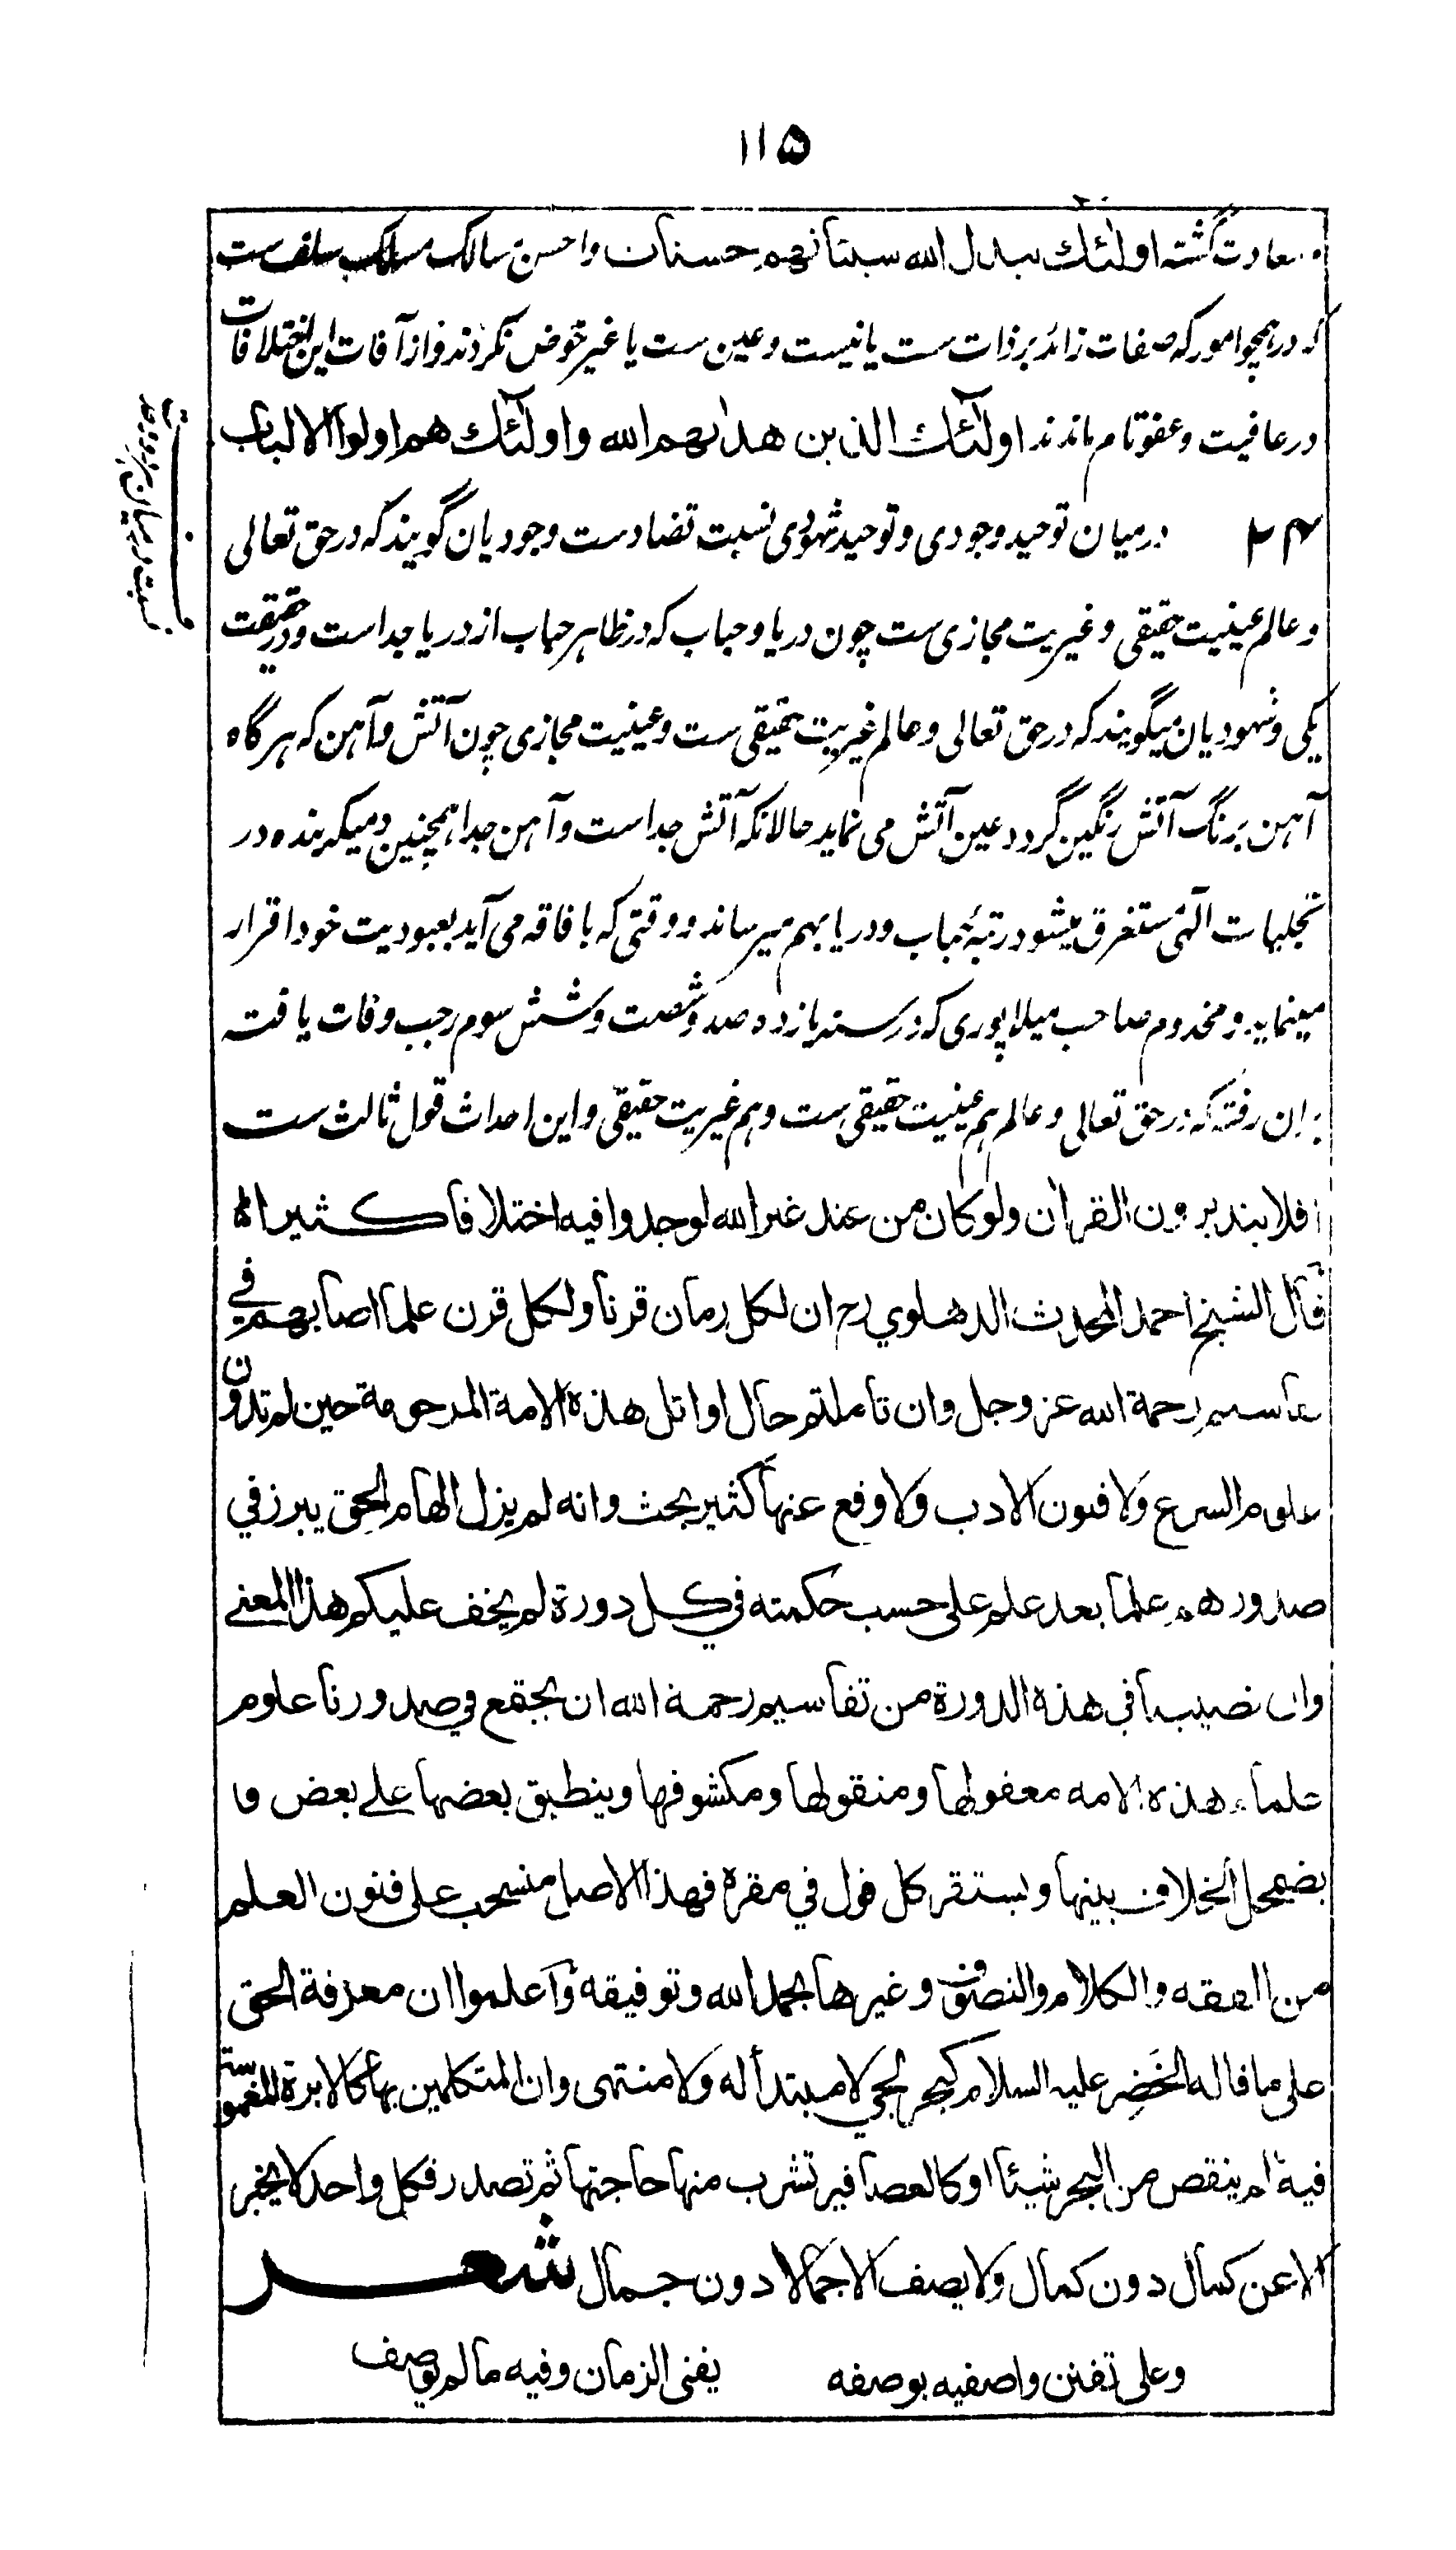 ۱۱۵
سعادت گشته اولئك يبدل الله سيئاتهم حسنات واحسن مسالک مسلک سلف ست
که در همچو امور که صفات زائد بر ذات ست یا نیست و عین ست یا غیر خوض نکردند و از آفات این اختلافات
در عافیت و عفو تام ماندند اولٓئك الذين هدٰىهم الله واولٓئك هم اولوا الالباب
۲۴ درمیان توحید وجودی و توحید شهودی نسبت تضادست وجودیان گویند که در حق تعالی
و عالم عینیت حقیقی و غیریت مجازی ست چون دریا و حباب که در ظاهر حباب از دریا جداست و در حقیقت
یکی و شهودیان میگویند که در حق تعالی و عالم غیریت حقیقی ست و عینیت مجازی چون آتش و آهن که هرگاه
آهن برنگ آتش رنگین گردد عین آتش می نماید حالانکه آتش جداست و آهن جدا همچنین دمیکه بنده در
تجلیات الٰهی مستغرق میشود رتبۂ حباب و دریا بهم میرساند و وقتی که با فاقه می آید بعبودیت خود اقرار
مینماید و مخدوم صاحب میلاپوری که در سنه یازده صد و شصت و شش سوم رجب وفات یافته
بران رفته که در حق تعالی و عالم هم عینیت حقیقی ست و هم غیریت حقیقی و این احداث قول ثالث ست
افلا يتدبرون القران ولو كان من عند غير الله لوجدوا فيه اختلافا كثيرا ه
قال الشيخ احمد المحدث الدهلوي رح ان لكل زمان قرنا ولكل قرن علما اصابهم في
تقاسيم رحمة الله عز وجل وان تاملتم حال اوائل هذه الامة المرحومة حين لم تدون
علوم الشرع ولا فنون الادب ولا وقع عنها كثير بحث وانه لم يزل الهام الحق يبرز في
صدورهم علما بعد علم على حسب حكمته في كل دورة لم يخف عليكم هذا المعنے
وان نصيبنا في هذه الدورة من تقاسيم رحمة الله ان يجتمع في صدورنا علوم
علماء هذه الامه معقولها ومنقولها ومكشوفها وينطبق بعضها علے بعض و
يضمحل الخلاف بينها ويستقر كل قول في مقره فهذا الاصل منسحب على فنون العلم
من الفقه والكلام والتصوف وغيرها بحمد الله وتوفيقه وٓاعلموا ان معرفة الحق
على ما قاله الخضر عليه السلام كبحر لجي لا مبتدأ له ولا منتهى وان المتكلمين بها كالابرة المغموسة
فيه لم ينقص من البحر شيئا او كالعصافير تشرب منها حاجتها ثم تصدر فكل واحد لا يخبر
الا عن كمال دون كمال ولا يصف الا جمالا دون جمال شعر
وعلى تفنن واصفيه بوصفه يفنى الزمان وفيه ما لم يوصف
نسبت درمیان